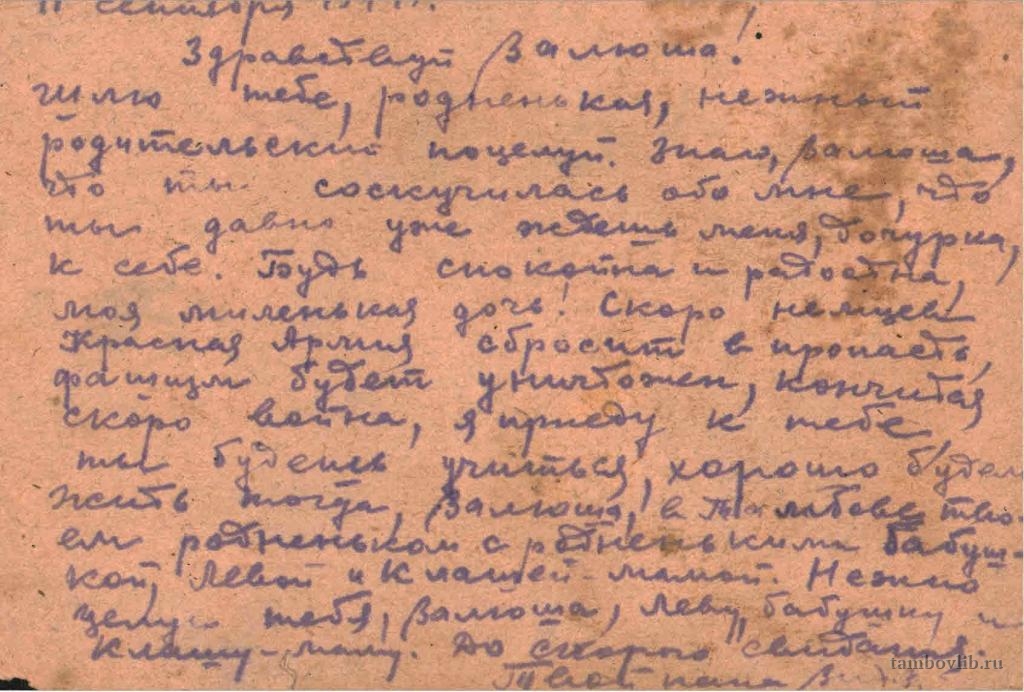 11 сентября
Здравствуй Валюша!
Шлю тебе, родненькая, нежный
родительский поцелуй. Знаю, Валюша,
что ты соскучилась обо мне, что
ты давно уже ждешь меня, дочурка,
к себе. Будь спокойна и радостна,
моя миленькая дочь! Скоро немцев
Красная Армия сбросит в пропасть,
фашизм будет уничтожен, кончится
скоро война, я приеду к тебе,
ты будешь учиться, хорошо будем
жить тогда, Валюша, в Тамбове тво-
ем родненьком с родненькими бабуш-
кой, Левой и Клашей-мамой. Нежно
целую тебя, Валюша, Леву, бабушку и
Клашу-маму. До скорого свидания.
Твой папа
tambovlib.ru